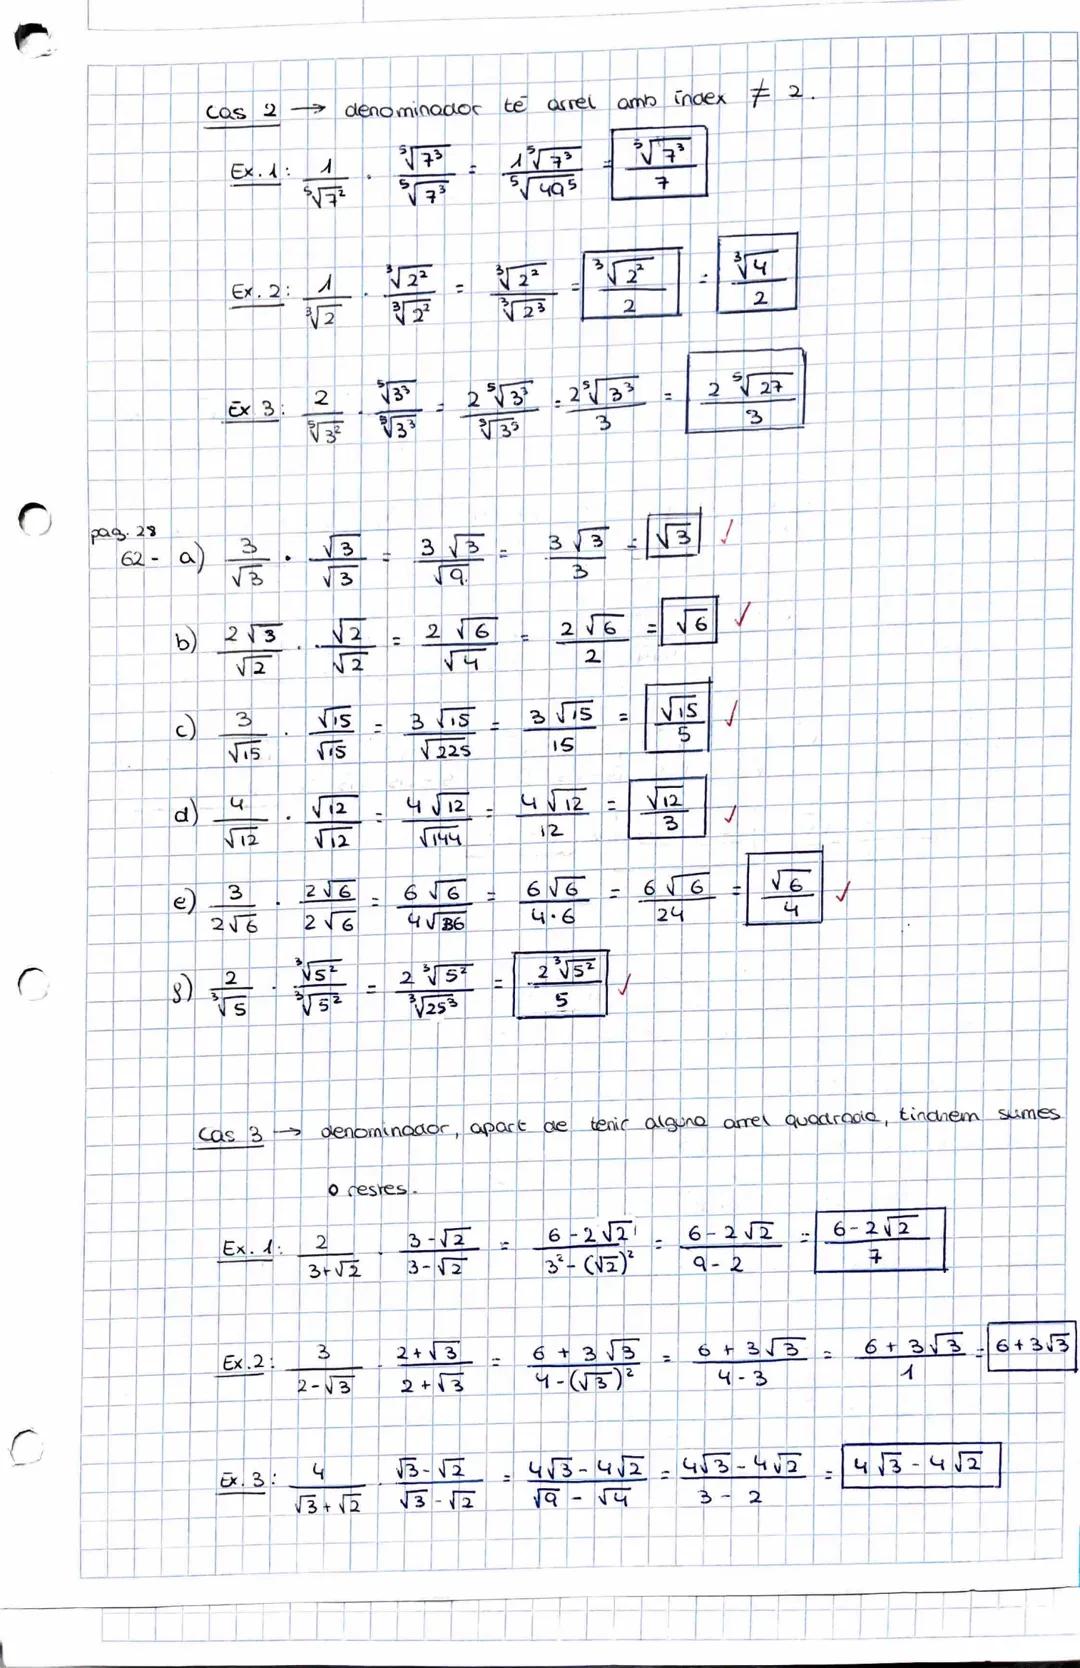 cas 2 → denominador té arrel amb índex ≠ 2.
Ex. 1: 1/⁵√7² · ⁵√7³/⁵√7³ = 1⁵√7³/⁵√49⁵ = ⁵√7³/7
Ex. 2: 1/³√2 · ³√2²/³√2² = ³√2²/³√2³ = ³√2²/2 = ³√4/2
Ex 3: 2/⁵√3² · ⁵√3³/⁵√3³ = 2⁵√3³/⁵√3⁵ = 2⁵√3³/3 = 2⁵√27/3
pag. 28
62- a) 3/√3 · √3/√3 = 3√3/√9 = 3√3/3 = √3 ✓
b) 2√3/√2 · √2/√2 = 2√6/√4 = 2√6/2 = √6 ✓
c) 3/√15 · √15/√15 = 3√15/√225 = 3√15/15 = √15/5 ✓
d) 4/√12 · √12/√12 = 4√12/√144 = 4√12/12 = √12/3 ✓
e) 3/2√6 · 2√6/2√6 = 6√6/4√36 = 6√6/4·6 = 6√6/24 = √6/4 ✓
g) 2/³√5 · ³√5²/³√5² = 2³√5²/³√25³ = 2³√5²/5 ✓
cas 3 → denominador, apart de tenir alguna arrel quadrada, tindrem sumes
o restes.
Ex. 1: 2/3+√2 · 3-√2/3-√2 = 6-2√2/3²-(√2)² = 6-2√2/9-2 = 6-2√2/7
Ex. 2: 3/2-√3 · 2+√3/2+√3 = 6+3√3/4-(√3)² = 6+3√3/4-3 = 6+3√3/1 = 6+3√3
Ex. 3: 4/√3+√2 · √3-√2/√3-√2 = 4√3-4√2/√9-√4 = 4√3-4√2/3-2 = 4√3-4√2